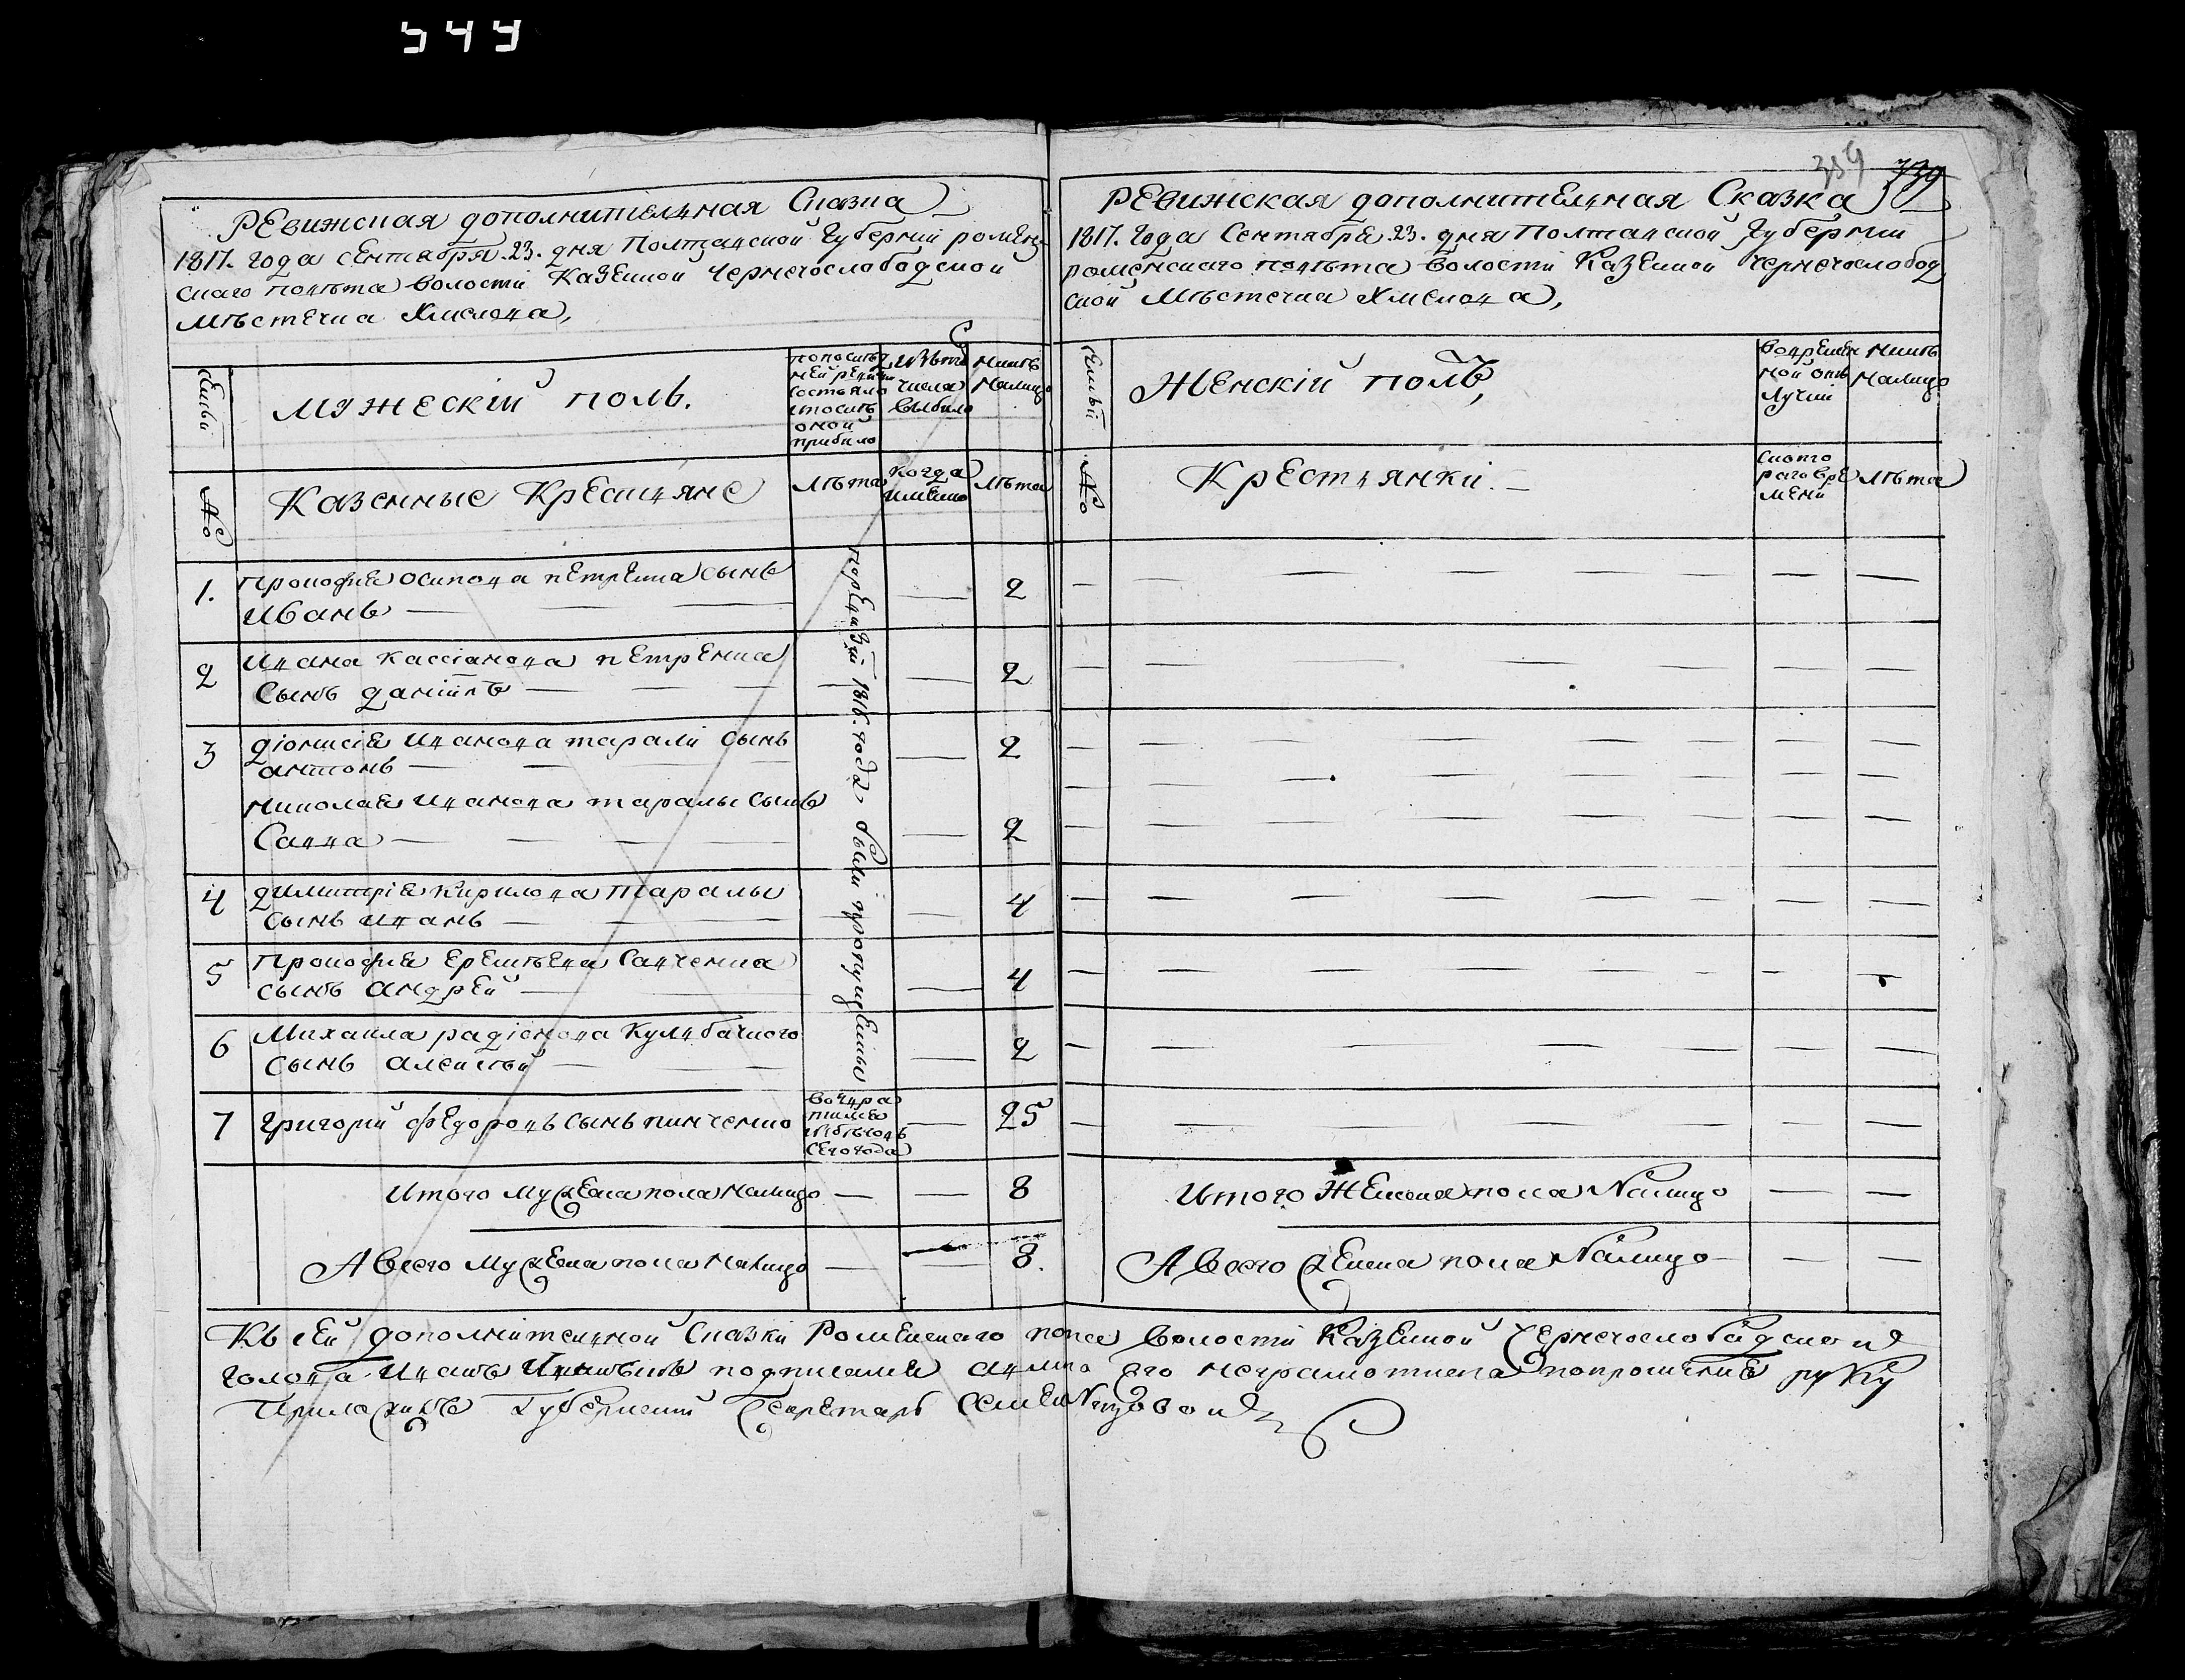 544
339 739
РЕвижская дополнителная Сказка
1817. года сЕнтября .23. дня Полтавской Губернии ромЕн
скаго повѣта волости КазЕнной Чернечослободской
мѣстЕчка Хмелова,
СЕмьи
мужескій поль.
по послѣд
нЕй рЕвизіи
состьяло
и послѣ
оной
прибило
изъ того
числа
выбило
нинѣ
налицо
№
Казенные КрЕстяне
лѣта
когда
имЕнно
лѣта
порЕвизіи 1816. года были пропущЕнны
1. Прокофия осипова пЕтрЕнка сынъ
Иванъ
2
2 Ивана кассіанова пЕтрЕнка
Сынъ даніилъ
2
3 діонисія Иванова тарали сынъ
антонъ
2
николая Иванова таралы сынъ
Савва
2
4 димитрія Кирилова таралы
сынъ иванъ
4
5 Прокофия ЕрЕмѣЕва Савченка
сынъ андрЕй
4
6 Михаила радіонова Кулябачного
сынъ алексѣй
2
7 Григорий фЕдоровъ сынъ пинченко
возвра
тился
изъбѣговъ
сего года
25
Итого мужЕска пола налицо 8
А всего мужЕска пола налицо 8.
РЕвижская дополнителная Сказка
1817. года Сентября .23. дня Полтавской Губернии
роменскаго повѣта волости КазЕнной Чернечослобод
ской Мѣстечка Хмелова,
СЕмьи
Женскій полъ,
воврЕмЕн
ной отъ
лучки
нинѣ
налицо
№
Крестянки.
скотго
раго врЕ
мЕни
лѣта
Итого ЖЕнска пола Налицо
А всего ЖЕнска пола Налицо
Къ сЕй дополнителной Сказки РомЕнскаго пов. волости КазЕнной Чернечослободской
голова Иванъ подписался а вмѣсто его неграмотнаго попрошЕнию руку
Приложилъ Губернский СЕкретарь СемЕн